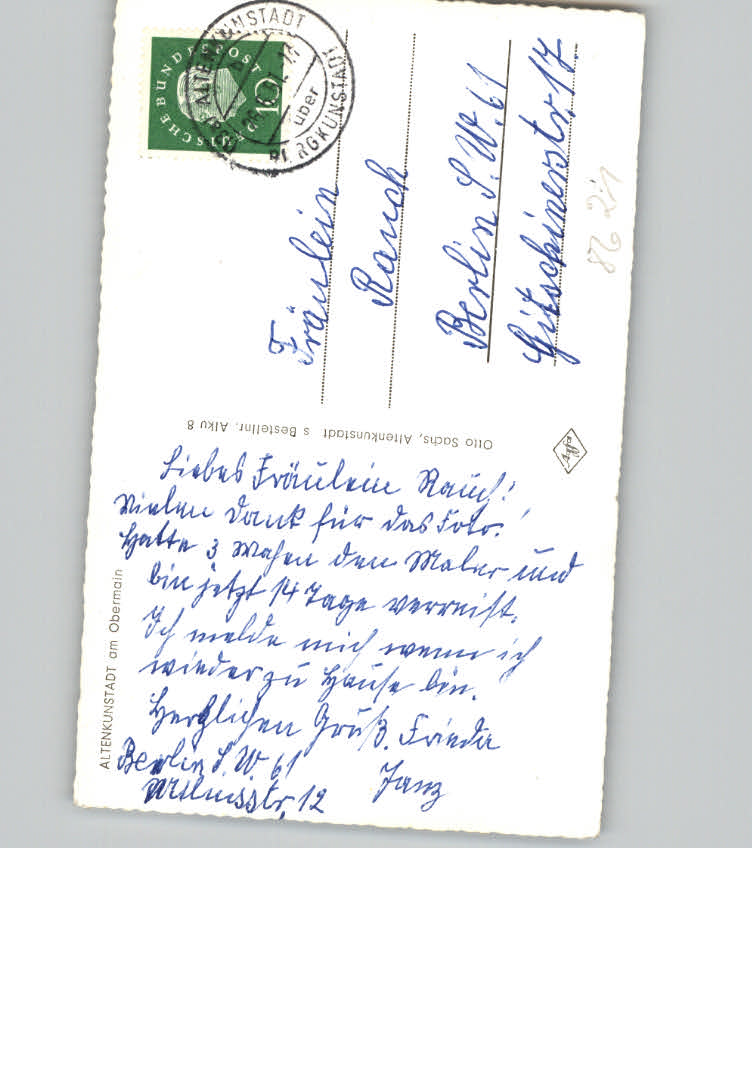 DEUTSCHE BUNDESPOST
10
ALTENKUNSTADT
über
BURGKUNSTADT
Fräulein
Rauch
Berlin S.W. 61
Gitschinerstr. 17.
Otto Sachs, Altenkunstadt s Bestellnr. Alku 8
Agfa
Liebes Fräulein Rauch!
Vielen Dank für das Foto!
Hatte 3 Wochen den Maler und
bin jetzt 14 Tage verreist.
Ich melde mich wenn ich
wieder zu Hause bin.
Herzlichen Gruß. Frieda
Janz
Berlin S.W. 61
Wilmsstr, 12
ALTENKUNSTADT am Obermain